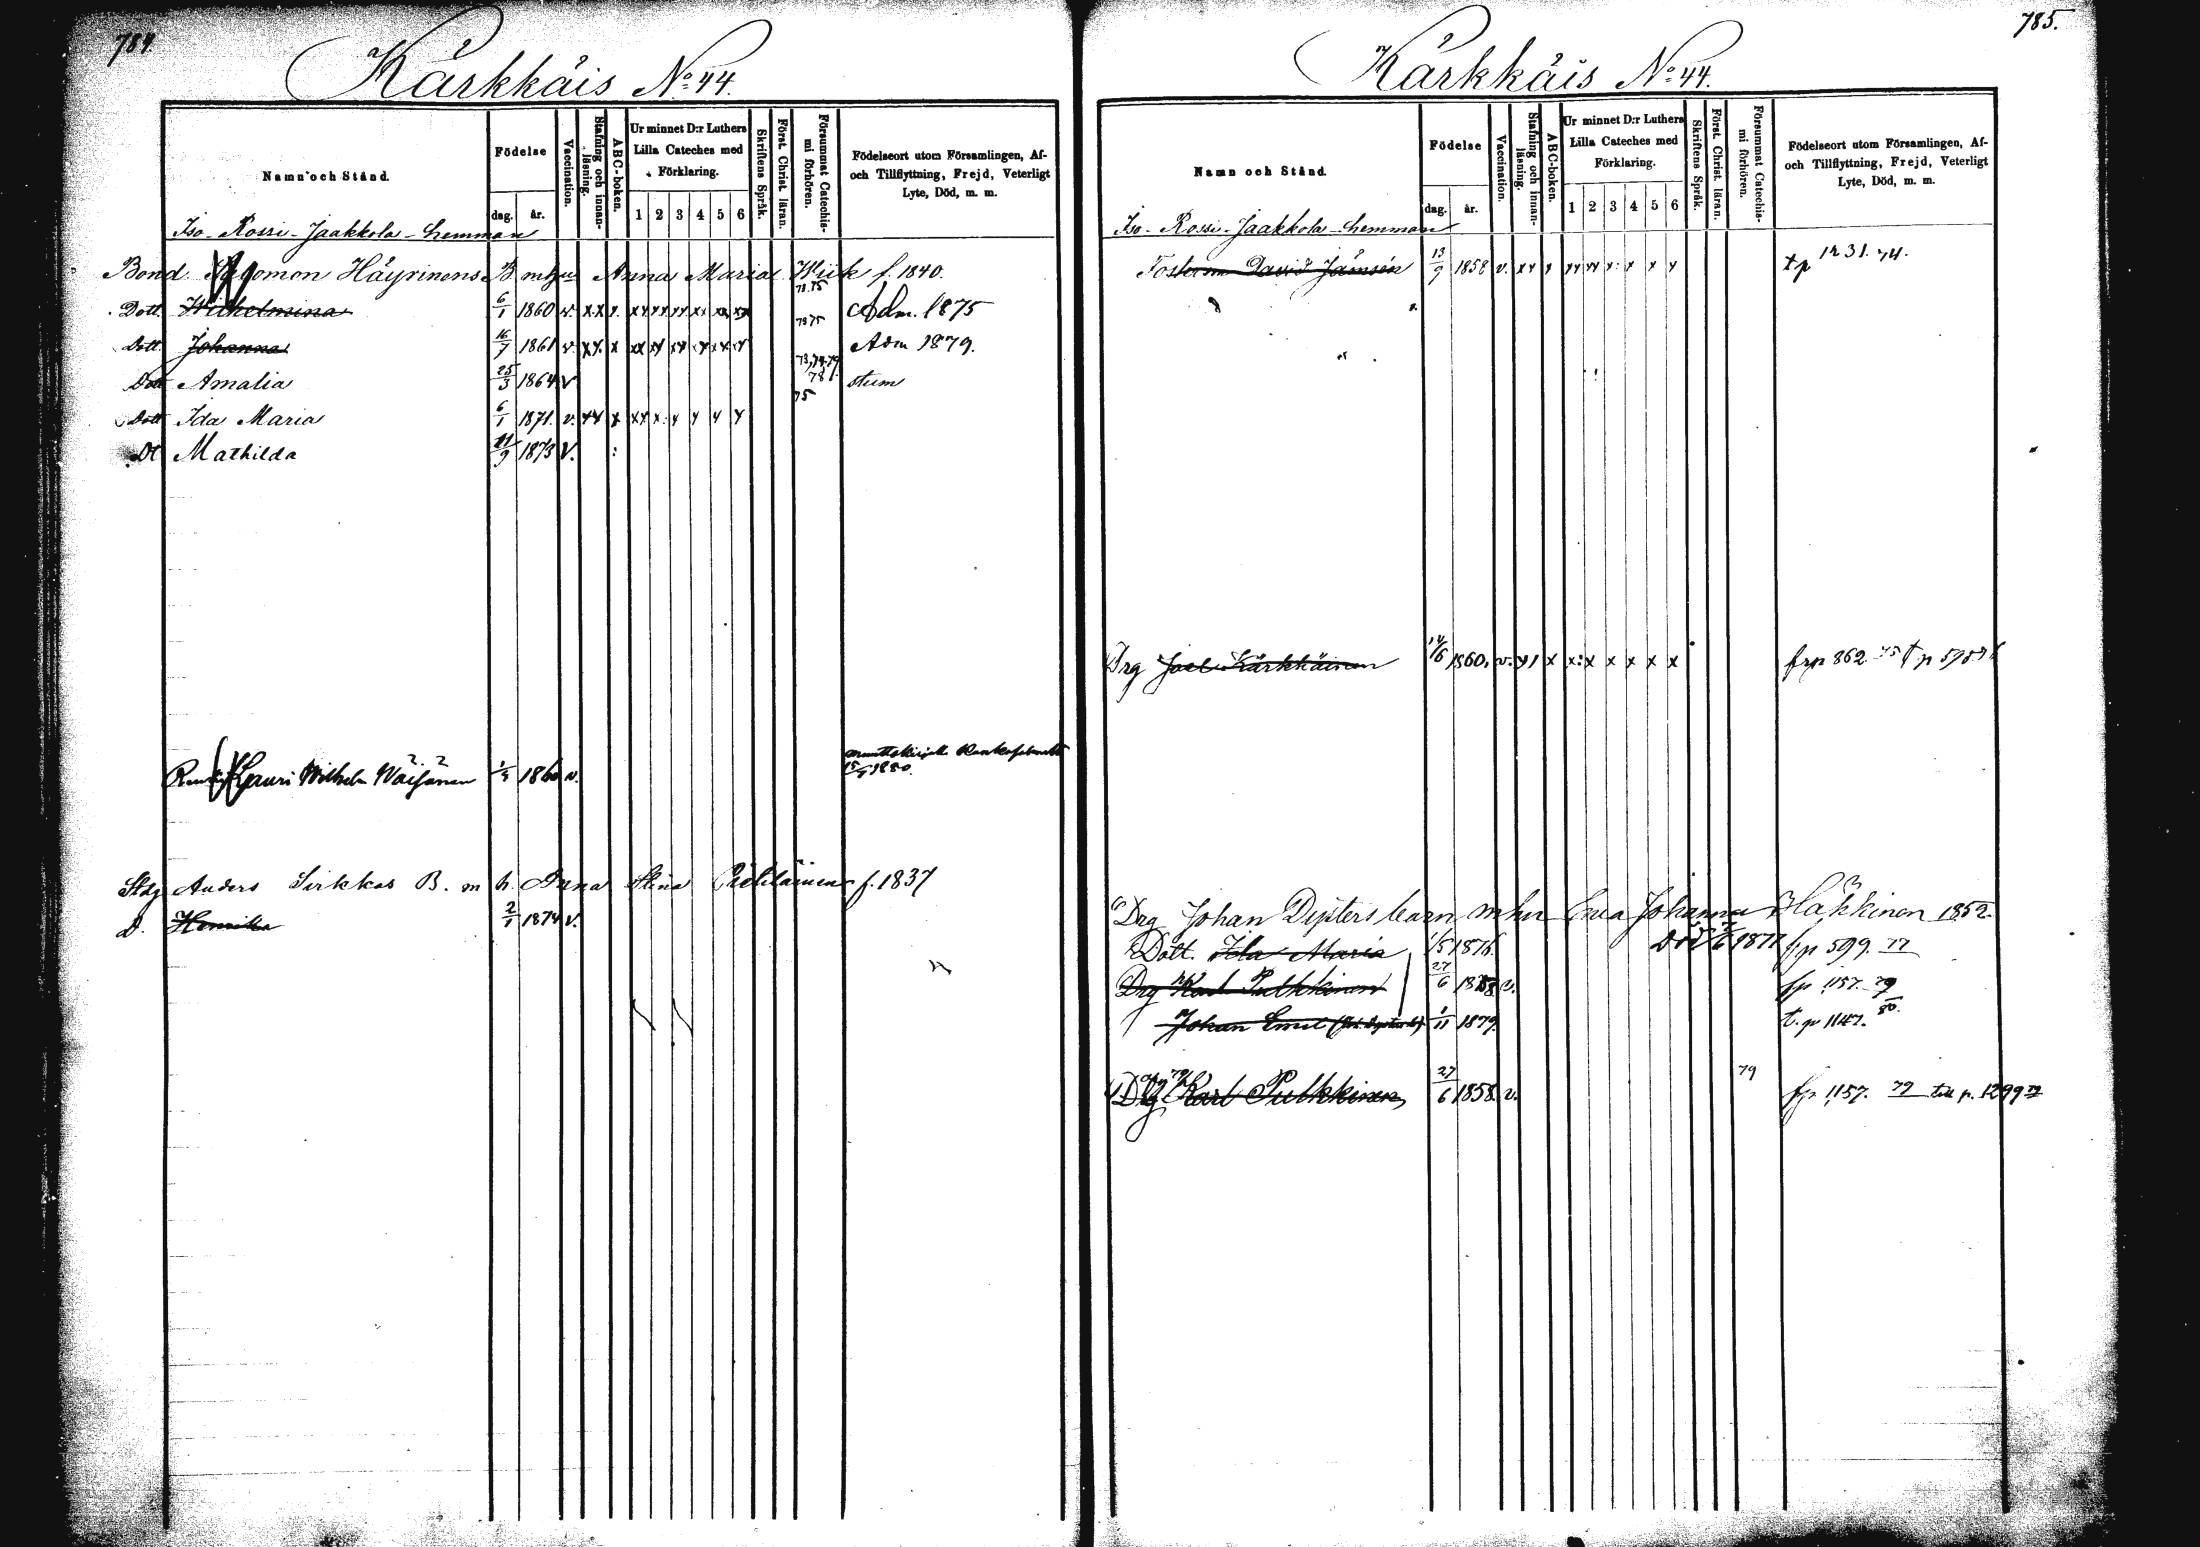 784.
Kärkkäis No 44.
Namn och Stånd.
Födelse
dag. år.
Vaccination.
Stafning och innan-läsning.
ABC-boken.
Ur minnet D:r Luthers Lilla Cateches med Förklaring.
1 2 3 4 5 6
Skriftens Språk.
Först. Christ. läran.
Försummat Catechis-mi förhören.
Födelseort utom Församlingen, Af- och Tillflyttning, Frejd, Veterligt Lyte, Död, m. m.
Iso-Rossi-Jaakkola-hemman
Bond Salomon Häyrinens B mhu Anna Maria Wiik f. 1840.
Dott. Wilhelmina 6/1 1860 v. x x x x x x x x x x 73.75 Adm. 1875
Dott. Johanna 16/7 1861 v. x x x x x x x x x 73 75 Adm 1879.
Dott Amalia 25/3 1864 v 73,74,79 78 stum
Dott Ida Maria 6/1 1871. v. x x x x x x x x x x 75
Dt Mathilda 21/9 1873 v.
Lauri Wilhelm Waisanen 1860 v. 1880.
Stdg Anders Sirkkas B. m h. Anna Stina f. 1837
D. Henrika 2/1 1874 v.
785.
Kärkkäis No 44.
Namn och Stånd.
Födelse
dag. år.
Vaccination.
Stafning och innan-läsning.
ABC-boken.
Ur minnet D:r Luthers Lilla Cateches med Förklaring.
1 2 3 4 5 6
Skriftens Språk.
Först. Christ. läran.
Försummat Catechis-mi förhören.
Födelseort utom Församlingen, Af- och Tillflyttning, Frejd, Veterligt Lyte, Död, m. m.
Iso-Rossi-Jaakkola-hemman
Fosterson David Jämsén 13/9 1858 v. x x x x x x x x x x tp 1231. 74.
Drg Joel Kärkkäinen 14/6 1860. v. x x x x x x x x frp 862 75 t p 595 76
Drg Johan Dysters barn mhu Eva Johanna Häkkinen 1852
Dott. Ida Maria 1/5 1876. Död 1877 fp 599. 77
Drg Karl Pulkkinen 27/6 1858 v. fp 1157. 79
Johan Emil 1/11 1879. t. p 1147. 80.
Drg Karl Pulkkinen 27/6 1858. v. 79 fp 1157. 79 till p. 1299